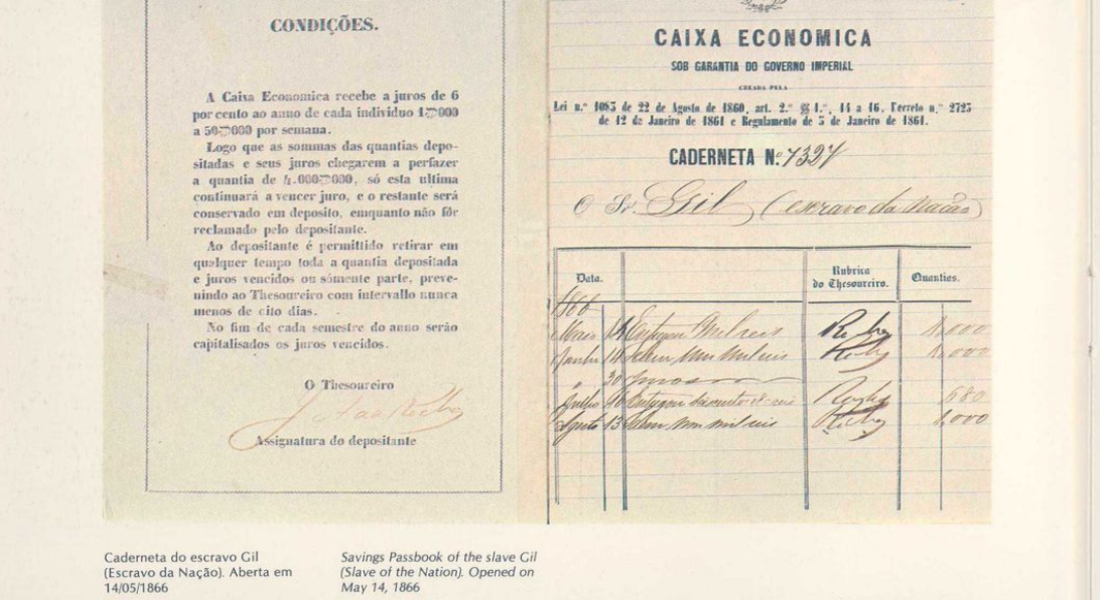 CONDIÇÕES.
A Caixa Economica recebe a juros de 6
por cento ao anno de cada individuo 1$000
a 50$000 por semana.
Logo que as sommas das quantias depo-
sitadas e seus juros chegarem a perfazer
a quantia de 4.000$000, só esta ultima
continuará a vencer juro, e o restante será
conservado em deposito, emquanto não fôr
reclamado pelo depositante.
Ao depositante é permittido retirar em
qualquer tempo toda a quantia depositada
e juros vencidos ou sómente parte, preve-
nindo ao Thesoureiro com intervallo nunca
menos de oito dias.
No fim de cada semestre do anno serão
capitalisados os juros vencidos.
O Thesoureiro
Assignatura do depositante
CAIXA ECONOMICA
SOB GARANTIA DO GOVERNO IMPERIAL
CREADA PELA
Lei n.º 1083 de 22 de Agosto de 1860, art. 2.º §§ 1.º, 14 a 16, Decreto n.º 2723
de 12 de Janeiro de 1861 e Regulamento de 5 de Janeiro de 1861.
CADERNETA Nº 7327
O Sr. Gil (escravo da Nação)
Data. Rubrica do Thesoureiro. Quantias.
1866
Maio 14 Mil reis Rocha 1.000
Junho 14 Mil reis Rocha 1.000
" 30 Juros
Julho 16 Rocha 680
Agosto 13 um mil reis Rocha 1.000
Caderneta do escravo Gil
(Escravo da Nação). Aberta em
14/05/1866
Savings Passbook of the slave Gil
(Slave of the Nation). Opened on
May 14, 1866